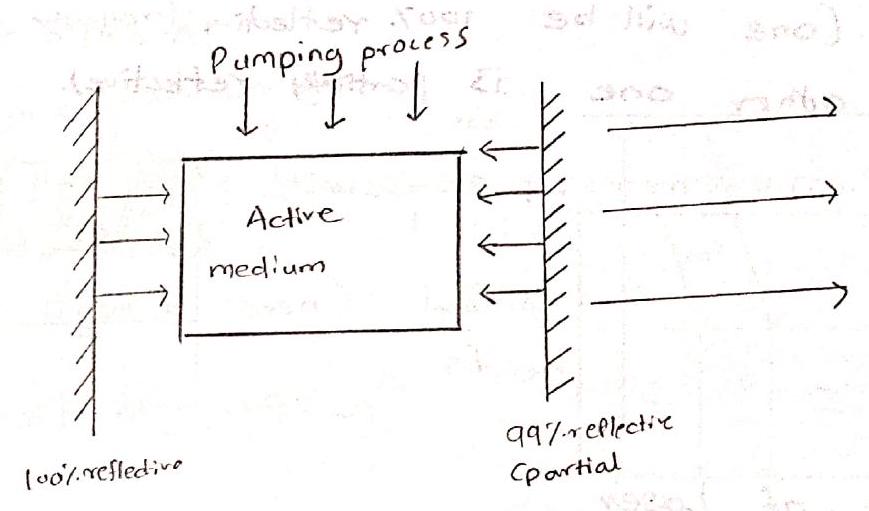 Pumping process
Active
medium
100% reflective
99% reflective
(partial